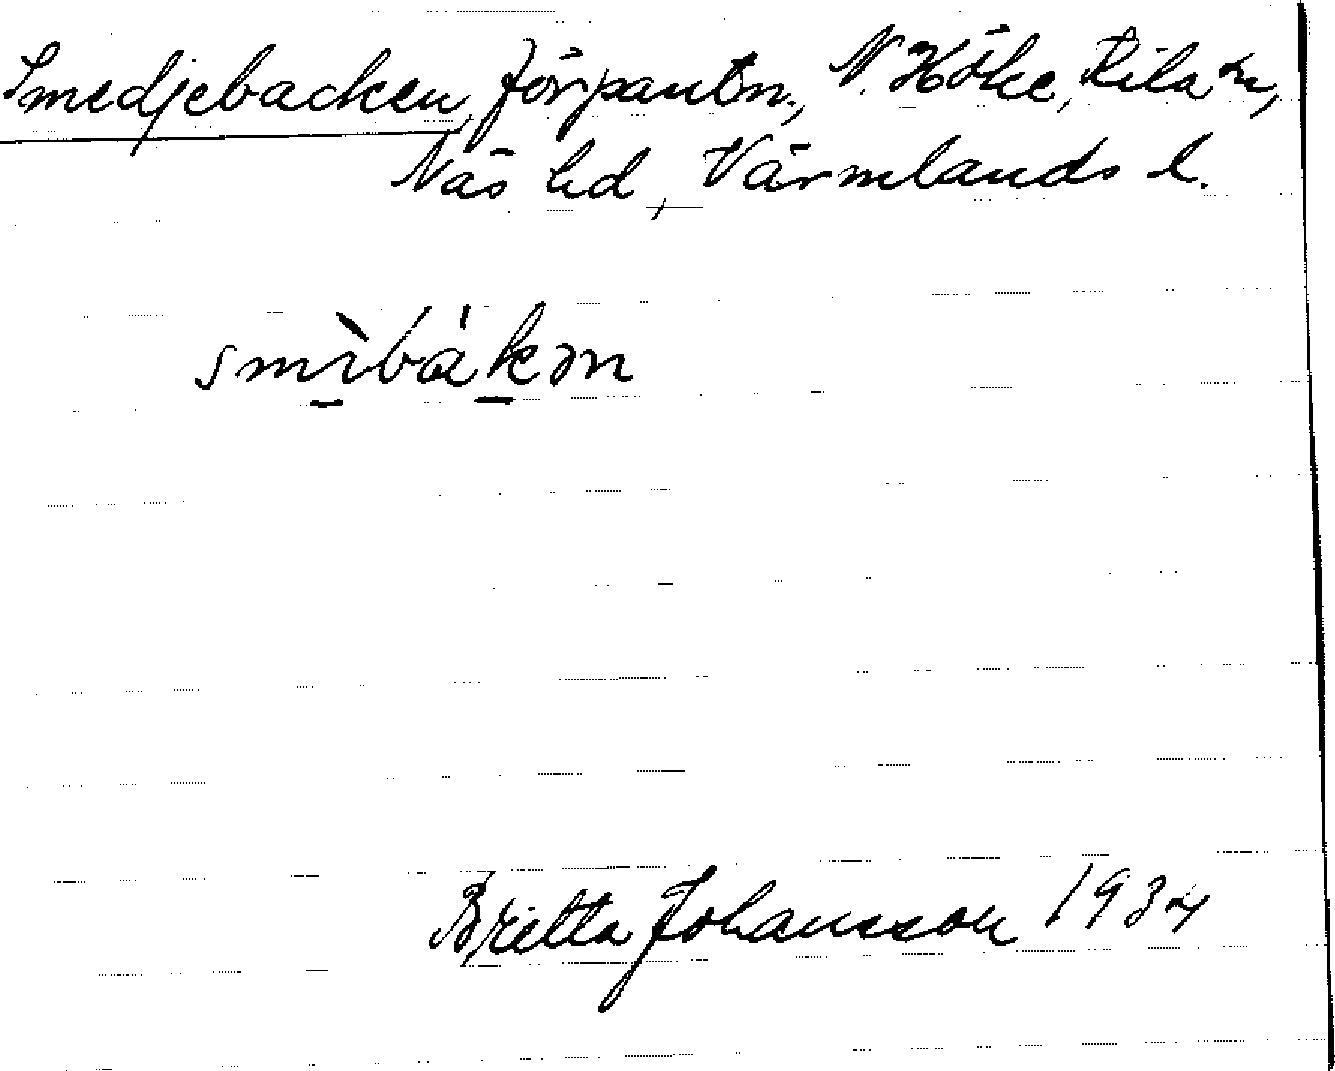 Smedjebacken, förpantn., N. Höke, Kila sn,
Näs hd, Värmlands l.
smì̱bák̠ən
Britta Johansson 1934